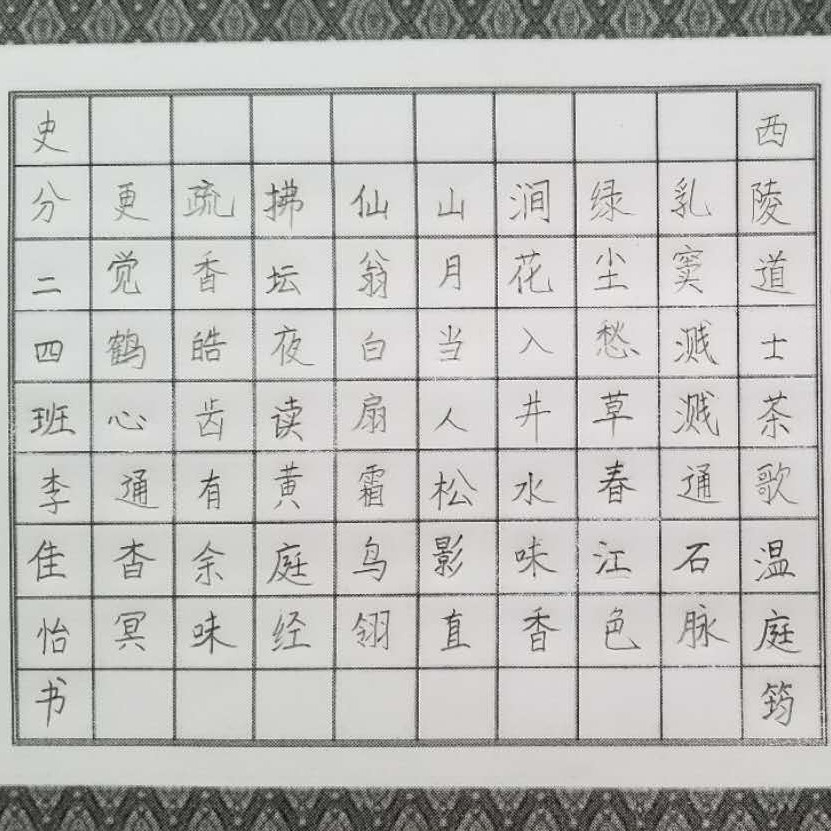 西陵道士茶歌温庭筠
乳窦溅溅通石脉
绿尘愁草春江色
涧花入井水味香
山月当人松影直
仙翁白扇霜鸟翎
拂坛夜读黄庭经
疏香皓齿有余味
更觉鹤心通杳冥
史分二四班李佳怡书